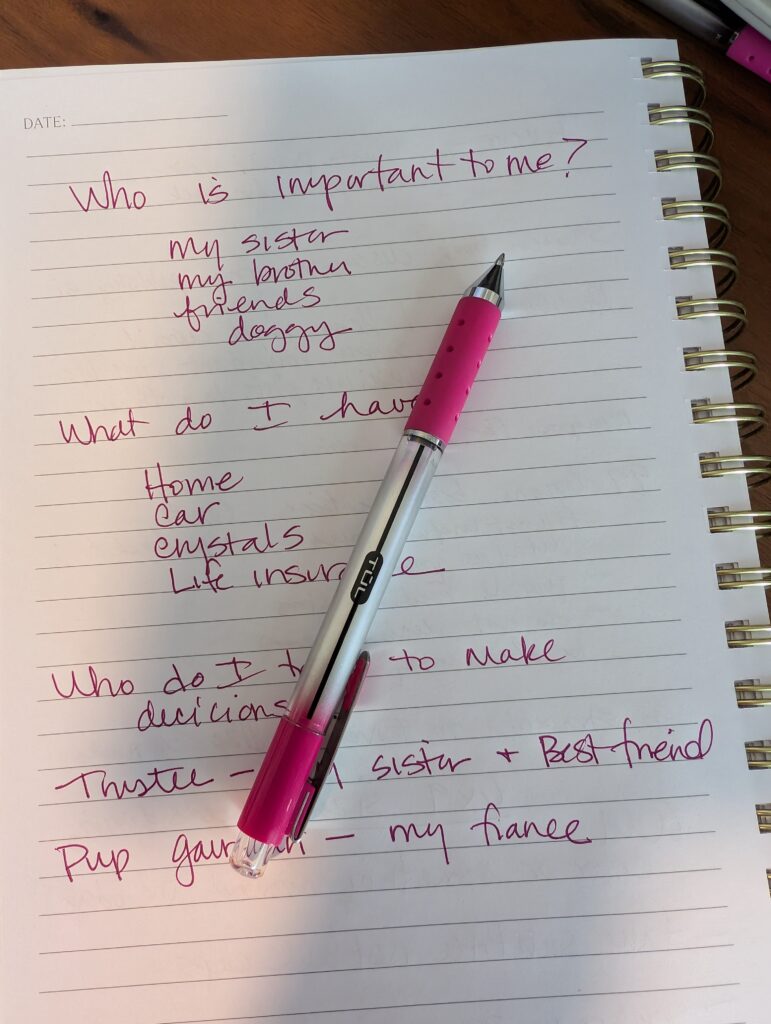 DATE:
Who is important to me?
my sister
my brother
friends
doggy
What do I have
Home
car
crystals
Life
TUL
Who do I to make
decicions
Trustee - sister + Best friend
Pup - my fiance